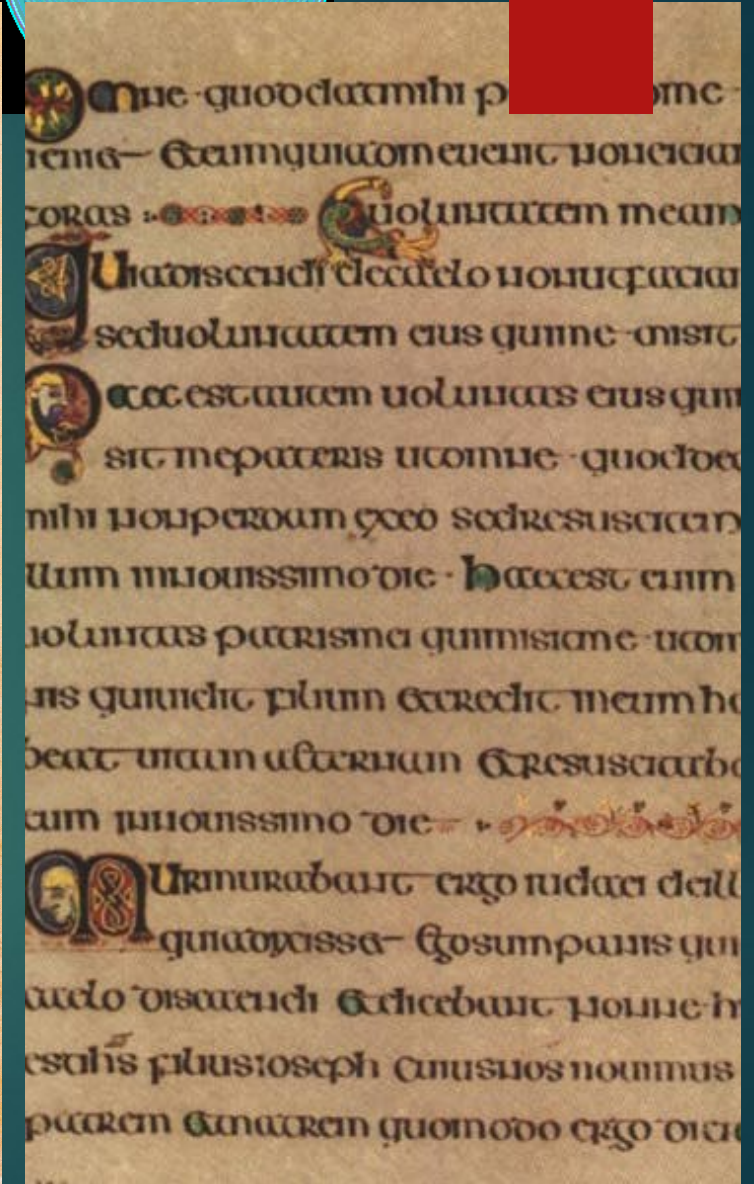 Omne · quod dat mihi p dme ·
ueniet Et eum qui adme uenit non eiciam
foras uoluntatem meam
Quia discendi de caelo non ut faciam
sed uoluntatem eius qui me · misit
haec est autem uoluntas eius qui m
sit me pateris ut omne · quod ded
mihi non perdam ex eo sed resuscitem
llum in nouissimo die · haec est enim
uoluntas patris mei qui misit me · ut om
nis qui uidit filium et credit in eum ha
beat uitam aeternam et resuscitabo
eum in nouissimo die
Murmurabant ergo iudaei de ill
quia dixisset Ego sum panis qui
caelo discendi et dicebant nonne · h
est filius ioseph cuius nos nouimus
patrem et matrem quomodo ergo dici